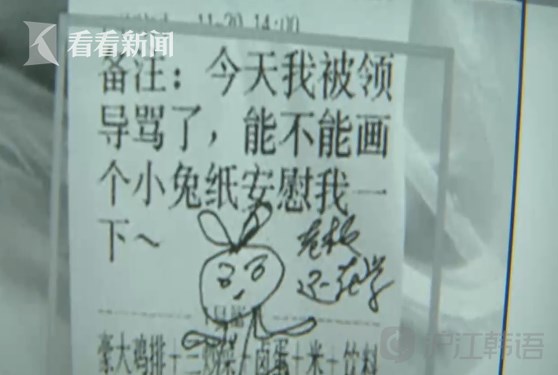 11-20 14:00
看看新闻
备注：今天我被领
导骂了，能不能画
个小兔纸安慰我一
下～
老板
还在学
豪大鸡排+三炒菜+卤蛋+米+饮料
沪江韩语